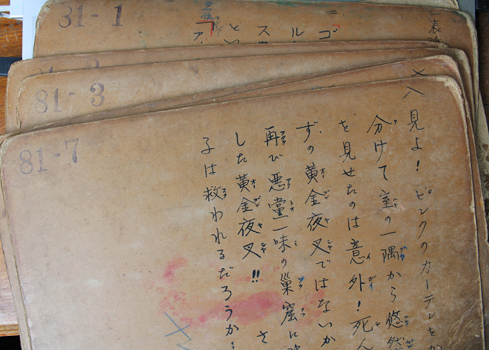 31-1
ゴ
ル
ス
とい
81-3
81-7
見よ!ピンクのカーテンをか
分けて室の一隅から悠然
を見せたのは意外!死
ずの黄金夜叉ではないか
再び悪堂一味の巣窟に
した黄金夜叉!! さ
子は救われるだろうか